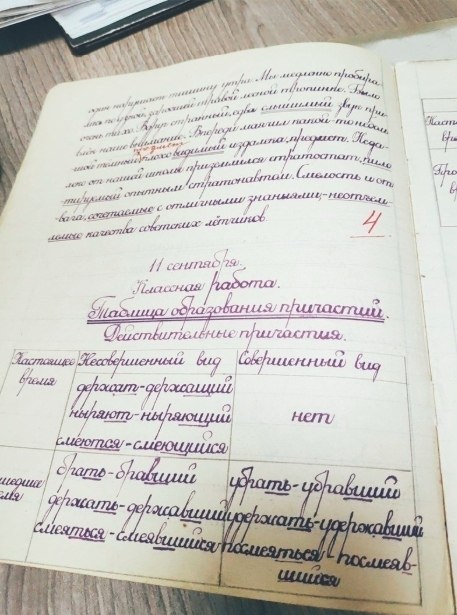 один нарушает тишину утра. Мы медленно пробира-
лись по узкой, заросшей травой лесной тропинке. Было
очень тихо. Вдруг странный, едва слышимый звук при-
влёк наше внимание. Впереди маячил какой-то небол-
шой тёмный, плохо видимый издалека, предмет. Неда-
леко от нашей школы приземлился стратостат, пило-
тируемый опытным стратонавтом. Смелость и от-
вага, сочетаемые с отличными знаниями,- неотъем-
лемые качества советских лётчиков.
4
11 сентября.
Классная работа.
Таблица образования причастий.
Действительные причастия.
Настоящее время
Несовершенный вид
Совершенный вид
держат-держащий
ныряют-ныряющий
смеются-смеющийся
нет
брать-бравший
держать-державший
смеяться-смеявшийся
убрать-убравший
удержать-удержавший
посмеяться-посмеяв-
шийся